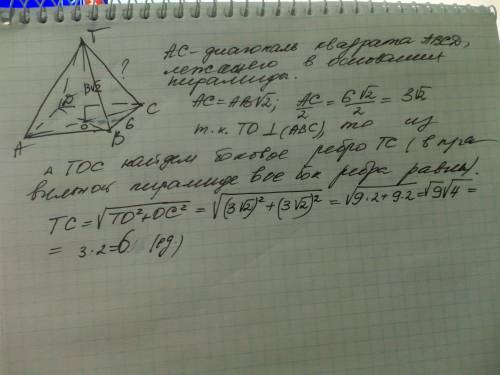 T
AC - диагональ квадрата ABCD,
лежащего в основании
пирамиды.
?
3√2
AC = AB√2; AC/2 = 6√2/2 = 3√2
т.к. TO ⊥ (ABC), то из
D
C
O
6
A
B
Δ TOC найдем боковое ребро TC (в пра-
вильной пирамиде все бок ребра равны).
TC = √TO²+OC² = √(3√2)²+(3√2)² = √9·2+9·2 = √9√4 =
= 3·2=6 (ед.)